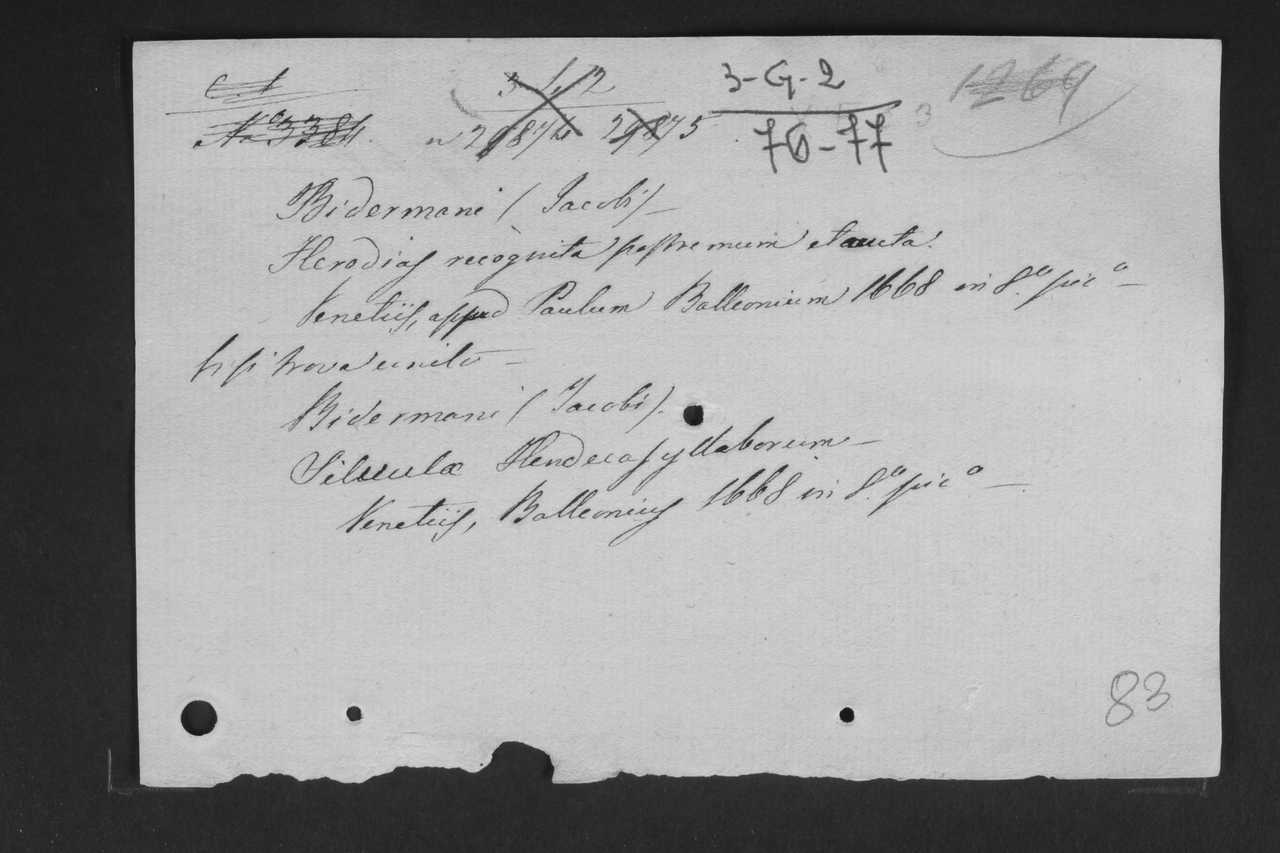 3-G-2
76-77
1269
Bidermani (Jacobi)—
Herodias recognita postremum et aucta.
Venetiis, appud Paulum Balleonium 1668 in 8.° pic°—
Vi si trova unito—
Bidermani (Jacobi).
Silvulæ Hendecasyllaborum—
Venetiis, Balleonius 1668 in 8.° pic°—.
83